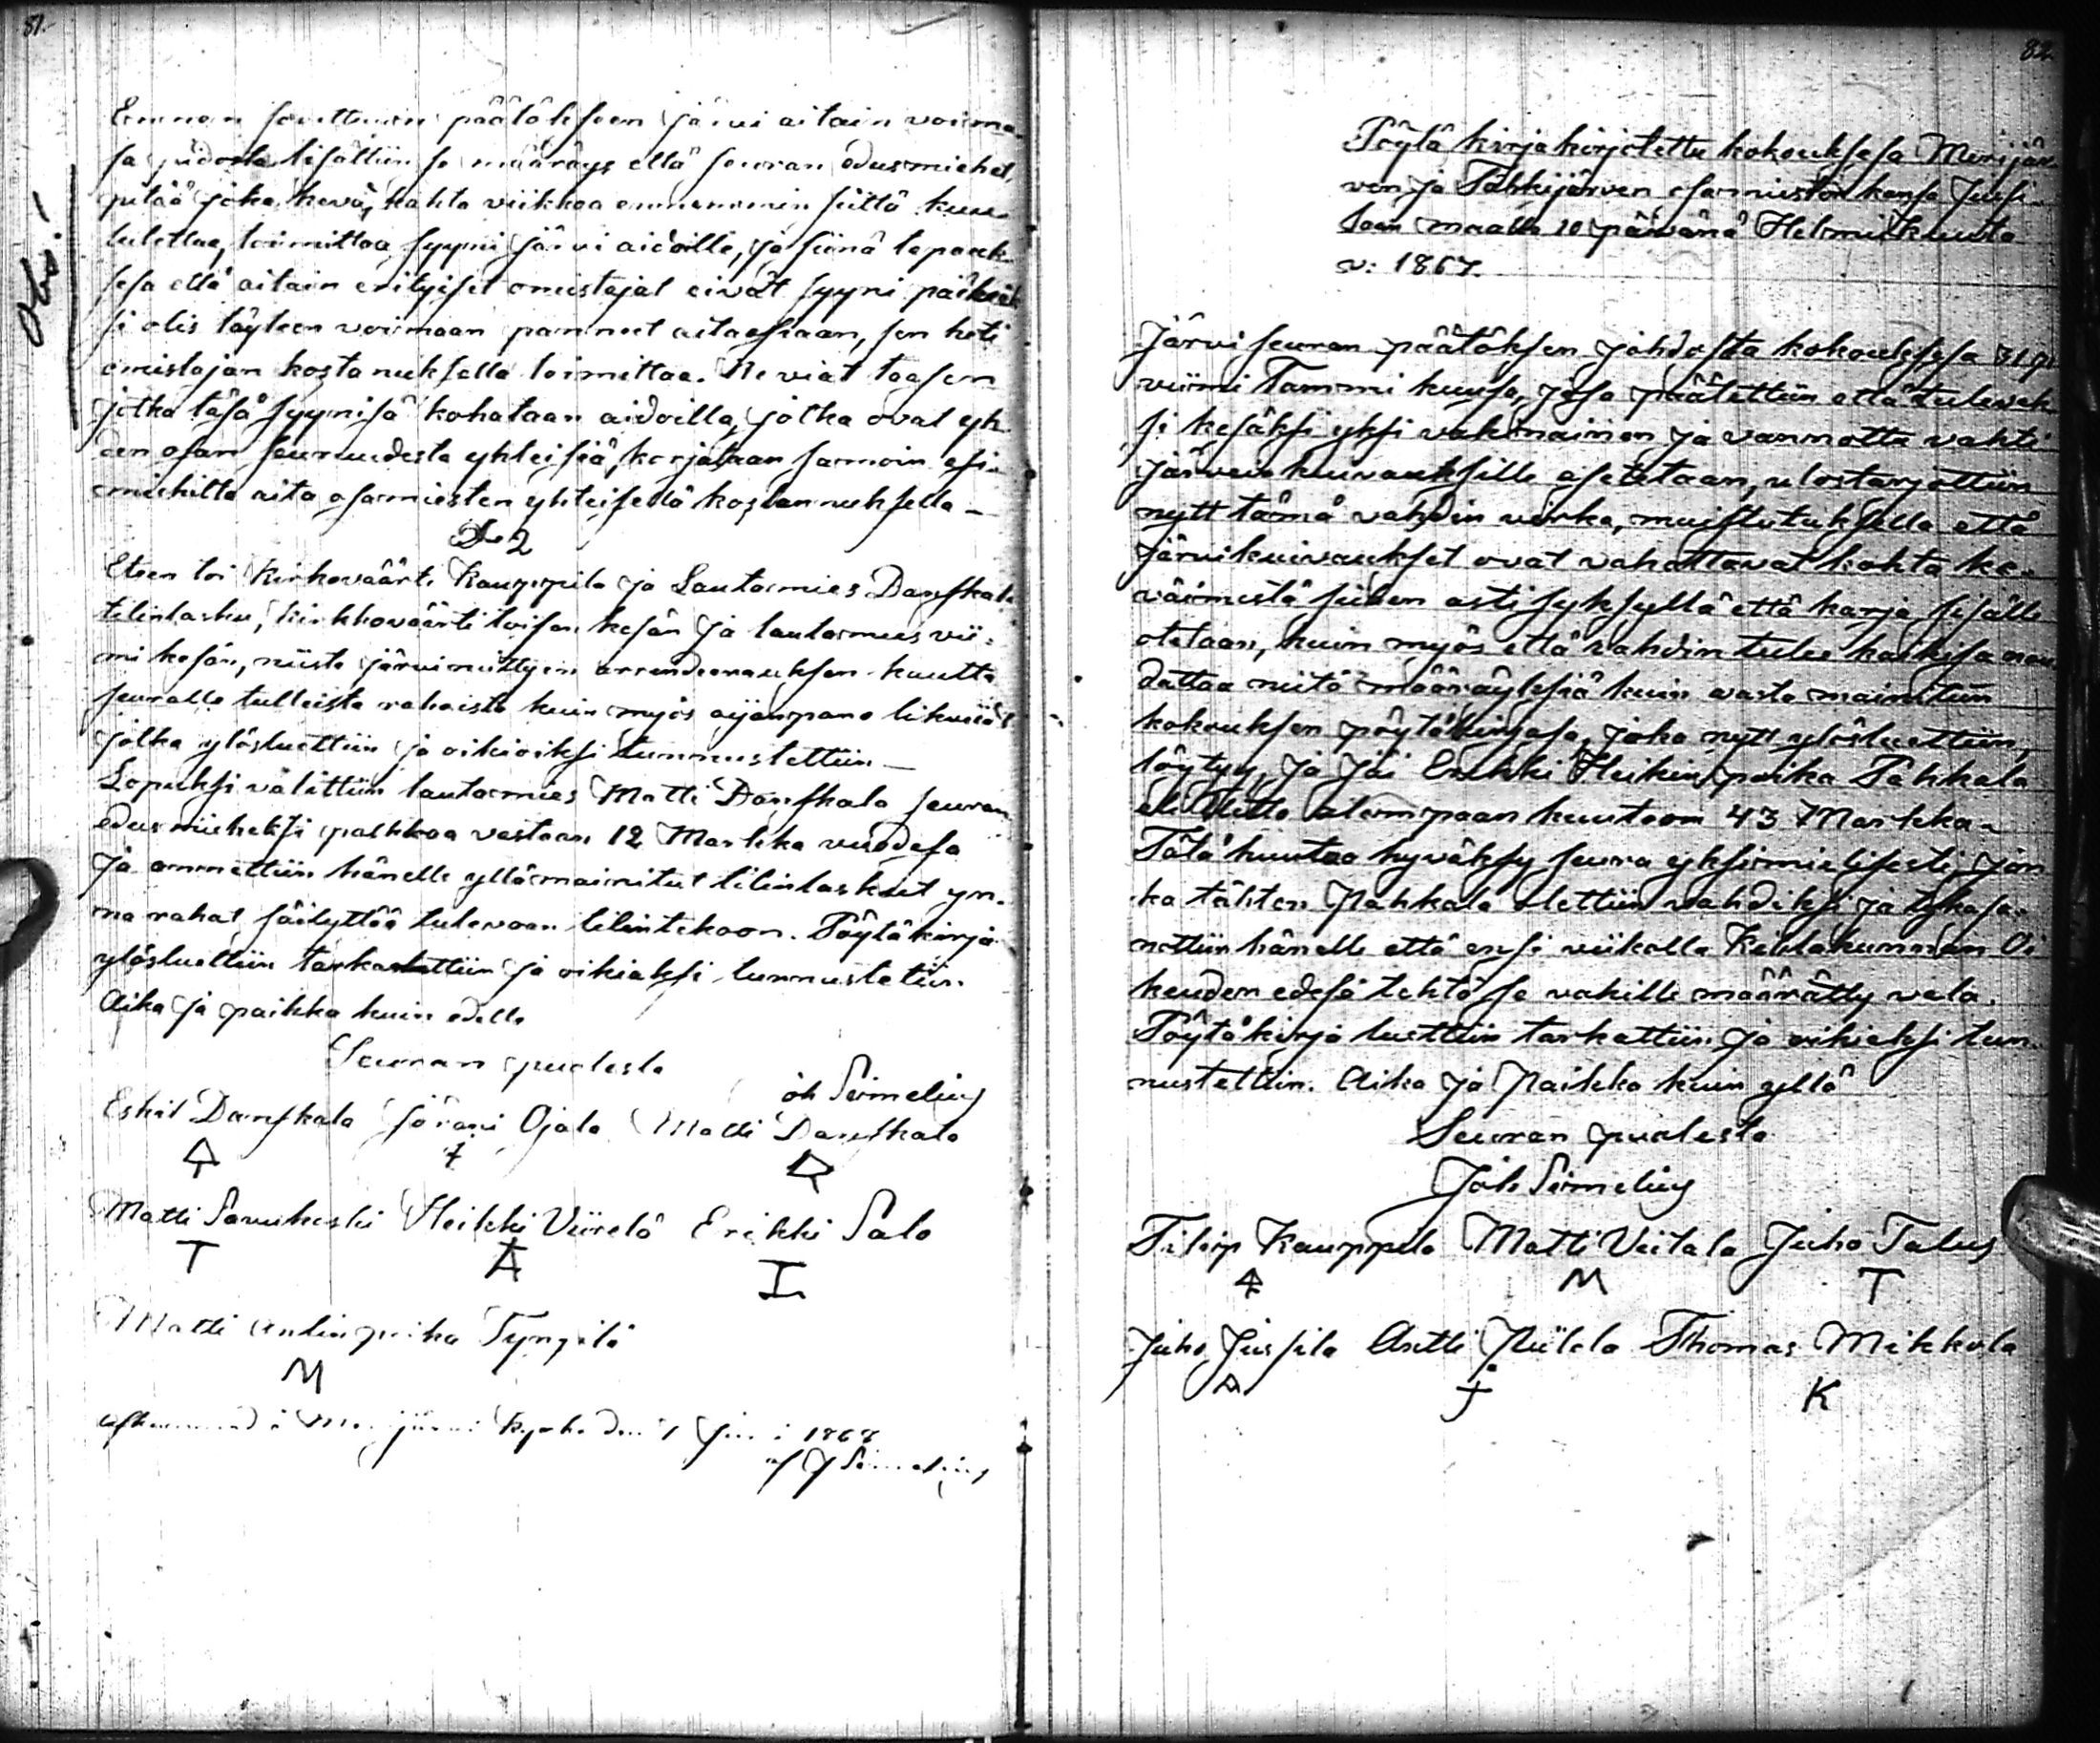 81.
Obs!
Ennen sovittuun päätökseen järvi aitain voima
sa pidosta lisättiin se määräys että seuran edusmiehet
pitää joka kevä, kahta viikkoa ennemmin siitä kuu
lutettaa, toimittaa syyni järvi aidoille, ja siinä tapauk
sesa että aitain erityiset omistajat eivät syyni päiväk
si olis täyteen voimaan panneet aitaosiaan, sen heti
omistajan kostanuksella toimittaa. Ne viat taasen
jotka täsä syynisä kohataan aidoilla, jotka ovat yh
den osan seuruudesta yhteisiä, korjataan samoin esi-
miehiltä aita osamiesten yhteisellä kostannuksella –
§ 2
Eteen toi Kirkoväärti Kauppila ja Lautamies Danskala
tilinlasku, kirkkoväärti toisen kesän ja lautamies vii-
mi kesän, niistä järviniittyin arrendeerauksen kautta
seuralle tulleista rahoista kuin myös
jotka ylösluettiin ja oikioiksi tunnustettiin –
Lopuksi valittiin lautamies Matti Danskala seuran
edusmieheksi palkkaa vastaan 12 Markka vuodesa
ja annettiin hänelle yllämainitut tilinlaskut yn-
na rahat säilyttää tulevaan tilintekoon. Pöytäkirja
ylösluettiin tarkastettiin ja oikiaksi tunnustetiin.
Aika ja paikka kuin edellä
Seuran puolesta
Joh Simelius
Eskil Danskala Jörani Ojala Matti Danskala
Matti Savukoski Heikki Viirelä Erikki Salo
T I
Matti Antinpoika Tyngilä
M
1868
af J Simelius
82
Pöytä kirja kirjotettu kokouksesa Merijär
ven ja Pahkijärven osamiestön kansa Jusi
laan maalla 10 päivänä Helmikuuta
v: 1867.
Järvi seuran päätöksen johdosta kokouksesa 31 p:
viimi Tammi kuusa, josa päätettiin että tulevak
si kesäksi yksi vakinainen ja vannottu vahti
järven kuivauksille asetetaan, ulostarjottiin
nytt tämä vahdin virka, muistutuksella että
järvikuivaukset ovat vahattavat kohta ke-
väimestä siihen asti syksyllä että karja sisälle
otetaan, kuin myös että vahdin tulee kaikisa nou
dattaa niitä määräyksiä kuin vasta mainitun
kokouksen pöytäkirjasa, joka nytt ylösluettiin,
löytyy, ja jäi Erikki Heikin poika Pahkala
alempaan huutoon 43 Markka –
Tätä huutoa hyväksy seura yksimielisesti, jon
ka tähten Pahkala otettiin vahdiksi ja tykäsa-
nottiin hänelle että ensi viikolla Kihlakunnan Oi
keuden edesä tehtä se vahille määrätty vala.
Pöytäkirja luettiin tarkattiin ja oikiaksi tun-
nustettiin. Aika ja Paikka kuin yllä
Seuran puolesta
Joh Simelius
Filip Kauppila Matti Viitala Juho Talus
M T
Juho Jussila Antti Pietilä Thomas Mikkola
K